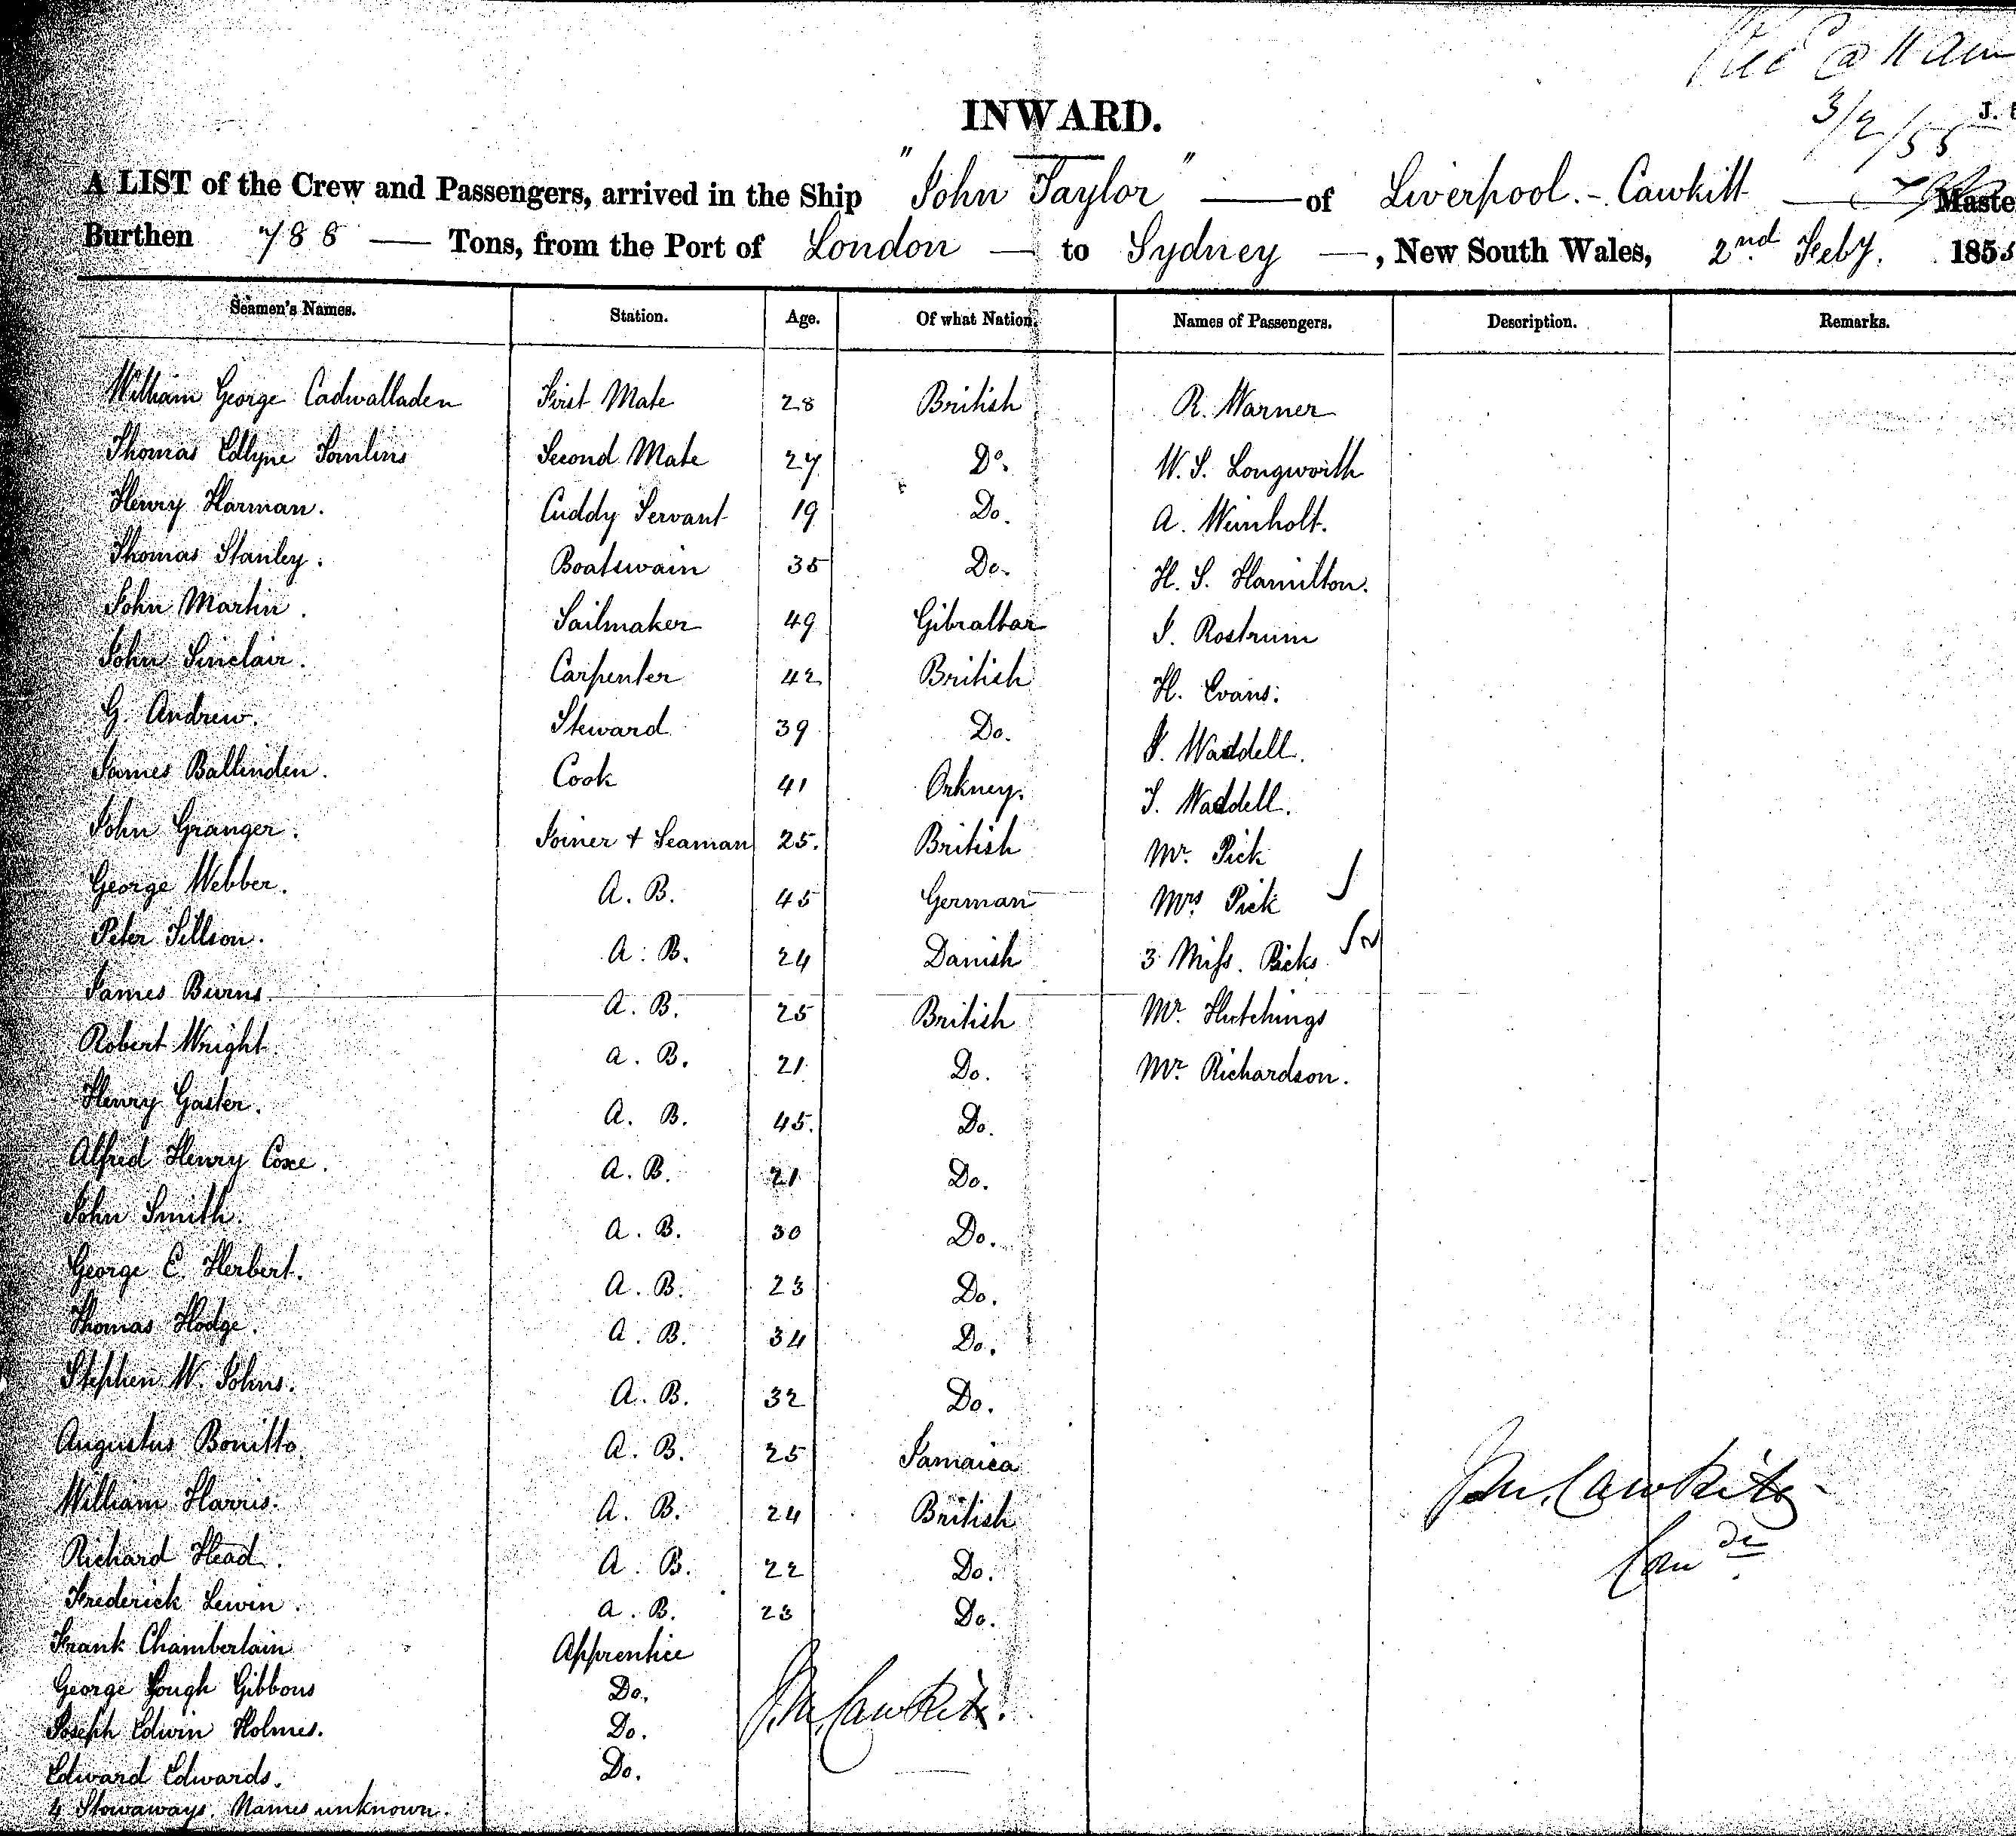 Rec @ 11 am
3/2/55
J.
INWARD.
A LIST of the Crew and Passengers, arrived in the Ship "John Taylor" — of Liverpool. - Cawkitt — Maste
Burthen 788 — Tons, from the Port of London — to Sydney —, New South Wales, 2nd Feby. 1855
Seamen's Names. Station. Age. Of what Nation. Names of Passengers. Description. Remarks.
William George Cadwalladen First Mate 28 British R. Warner
Thomas Edlyne Tomlins Second Mate 27 Do. W. S. Longworth
Henry Harman. Cuddy Servant 19 Do. A. Weinholt.
Thomas Stanley. Boatswain 35 Do. H. S. Hamilton.
John Martin. Sailmaker 49 Gibraltar J. Rostrum
John Sinclair. Carpenter 42 British H. Evans.
G. Andrew. Steward 39 Do. J. Waddell.
James Ballinden. Cook 41 Orkney. J. Waddell.
John Granger. Joiner + Seaman 25. British Mr. Pick
George Webber. A. B. 45 German Mrs. Pick
Peter Tillson. A. B. 24 Danish 3 Miss. Picks
James Burns A. B. 25 British Mr. Hutchings
Robert Wright. A. B. 21 Do. Mr. Richardson.
Henry Gaster. A. B. 45. Do.
Alfred Henry Coxe. A. B. 21 Do.
John Smith. A. B. 30 Do.
George E. Herbert. A. B. 23 Do.
Thomas Hodge. A. B. 34 Do.
Stephen W. Johns. A. B. 32 Do.
Augustus Bonitto A. B. 25 Jamaica
William Harris. A. B. 24 British
Richard Head. A. B. 22 Do.
Frederick Lewin. A. B. 23 Do.
Frank Chamberlain Apprentice
George Gough Gibbons Do.
Joseph Edwin Holmes. Do.
Edward Edwards. Do.
4 Stowaways. Names unknown.
Jn. Cawkitt.
Jn. Cawkitt